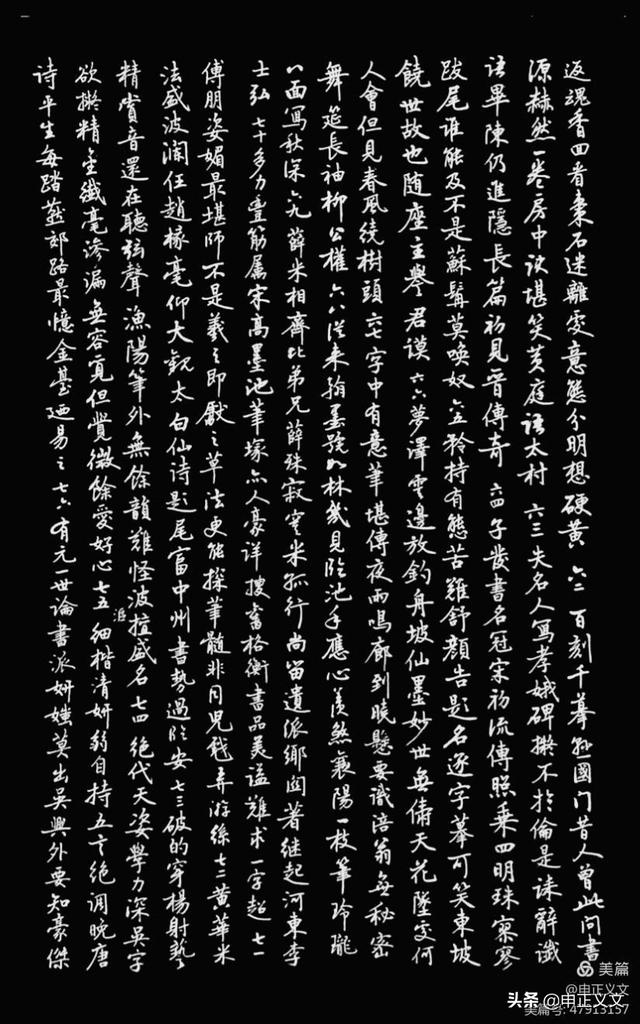 返魂香四看棗石迷離處意態分明想硬黃 六二 百刻千摹烜國門昔人曾此問書
源赫然一卷房中訣堪笑黃庭語太村 六三 失名人寫孝娥碑擬不於倫是誄辭讖
語畢陳仍進隱長篇初見晉傳奇 六四 子發書名冠宋初流傳照乘四明珠寥寥
跋尾誰能及不是蘇髯莫喚奴 六五 矜持有態苦難舒顏告題名逐字摹可笑東坡
饒世故也隨座主譽君謨 六六 夢澤雲邊放釣舟坡仙墨妙世無儔天花墜處何
人會但見春風繞樹頭 六七 字中有意筆堪傳夜雨鳴廊到曉懸要識涪翁無秘密
舞筵長袖柳公權 六八 從來翰墨號如林幾見臨池手應心羨煞襄陽一枝筆玲瓏
八面寫秋深 六九 薛米相齊比弟兄薛殊寂寞米孤行尚留遺派鄉閭著繼起河東李
士弘 七十 多力豐筋屬宋高墨池筆塚亦人豪詳搜舊格衡書品美謚難求一字超 七一
傅朋姿媚最堪師不是羲之即獻之草法更能探筆髓非同兒戲弄游絲 七二 黃華米
法盛波瀾任趙椽毫仰大觀太白仙詩題尾富中州書勢過臨安 七三 破的穿楊射藝
精賞音還在聽弦聲漁陽筆外無餘韻難怪波捨盛名 七四 絕代天姿學力深吳字
欲擬精金纖毫滲漏無容覓但覺微餘愛好心 七五 細楷清妍弱自持五言絕調晚唐
詩平生每踏燕郊路最憶金臺迺易之 七六 有元一世論書派妍媸莫出吳興外要知豪傑
美篇
@申正义文
头条 @申正义文
美篇号: 47913157